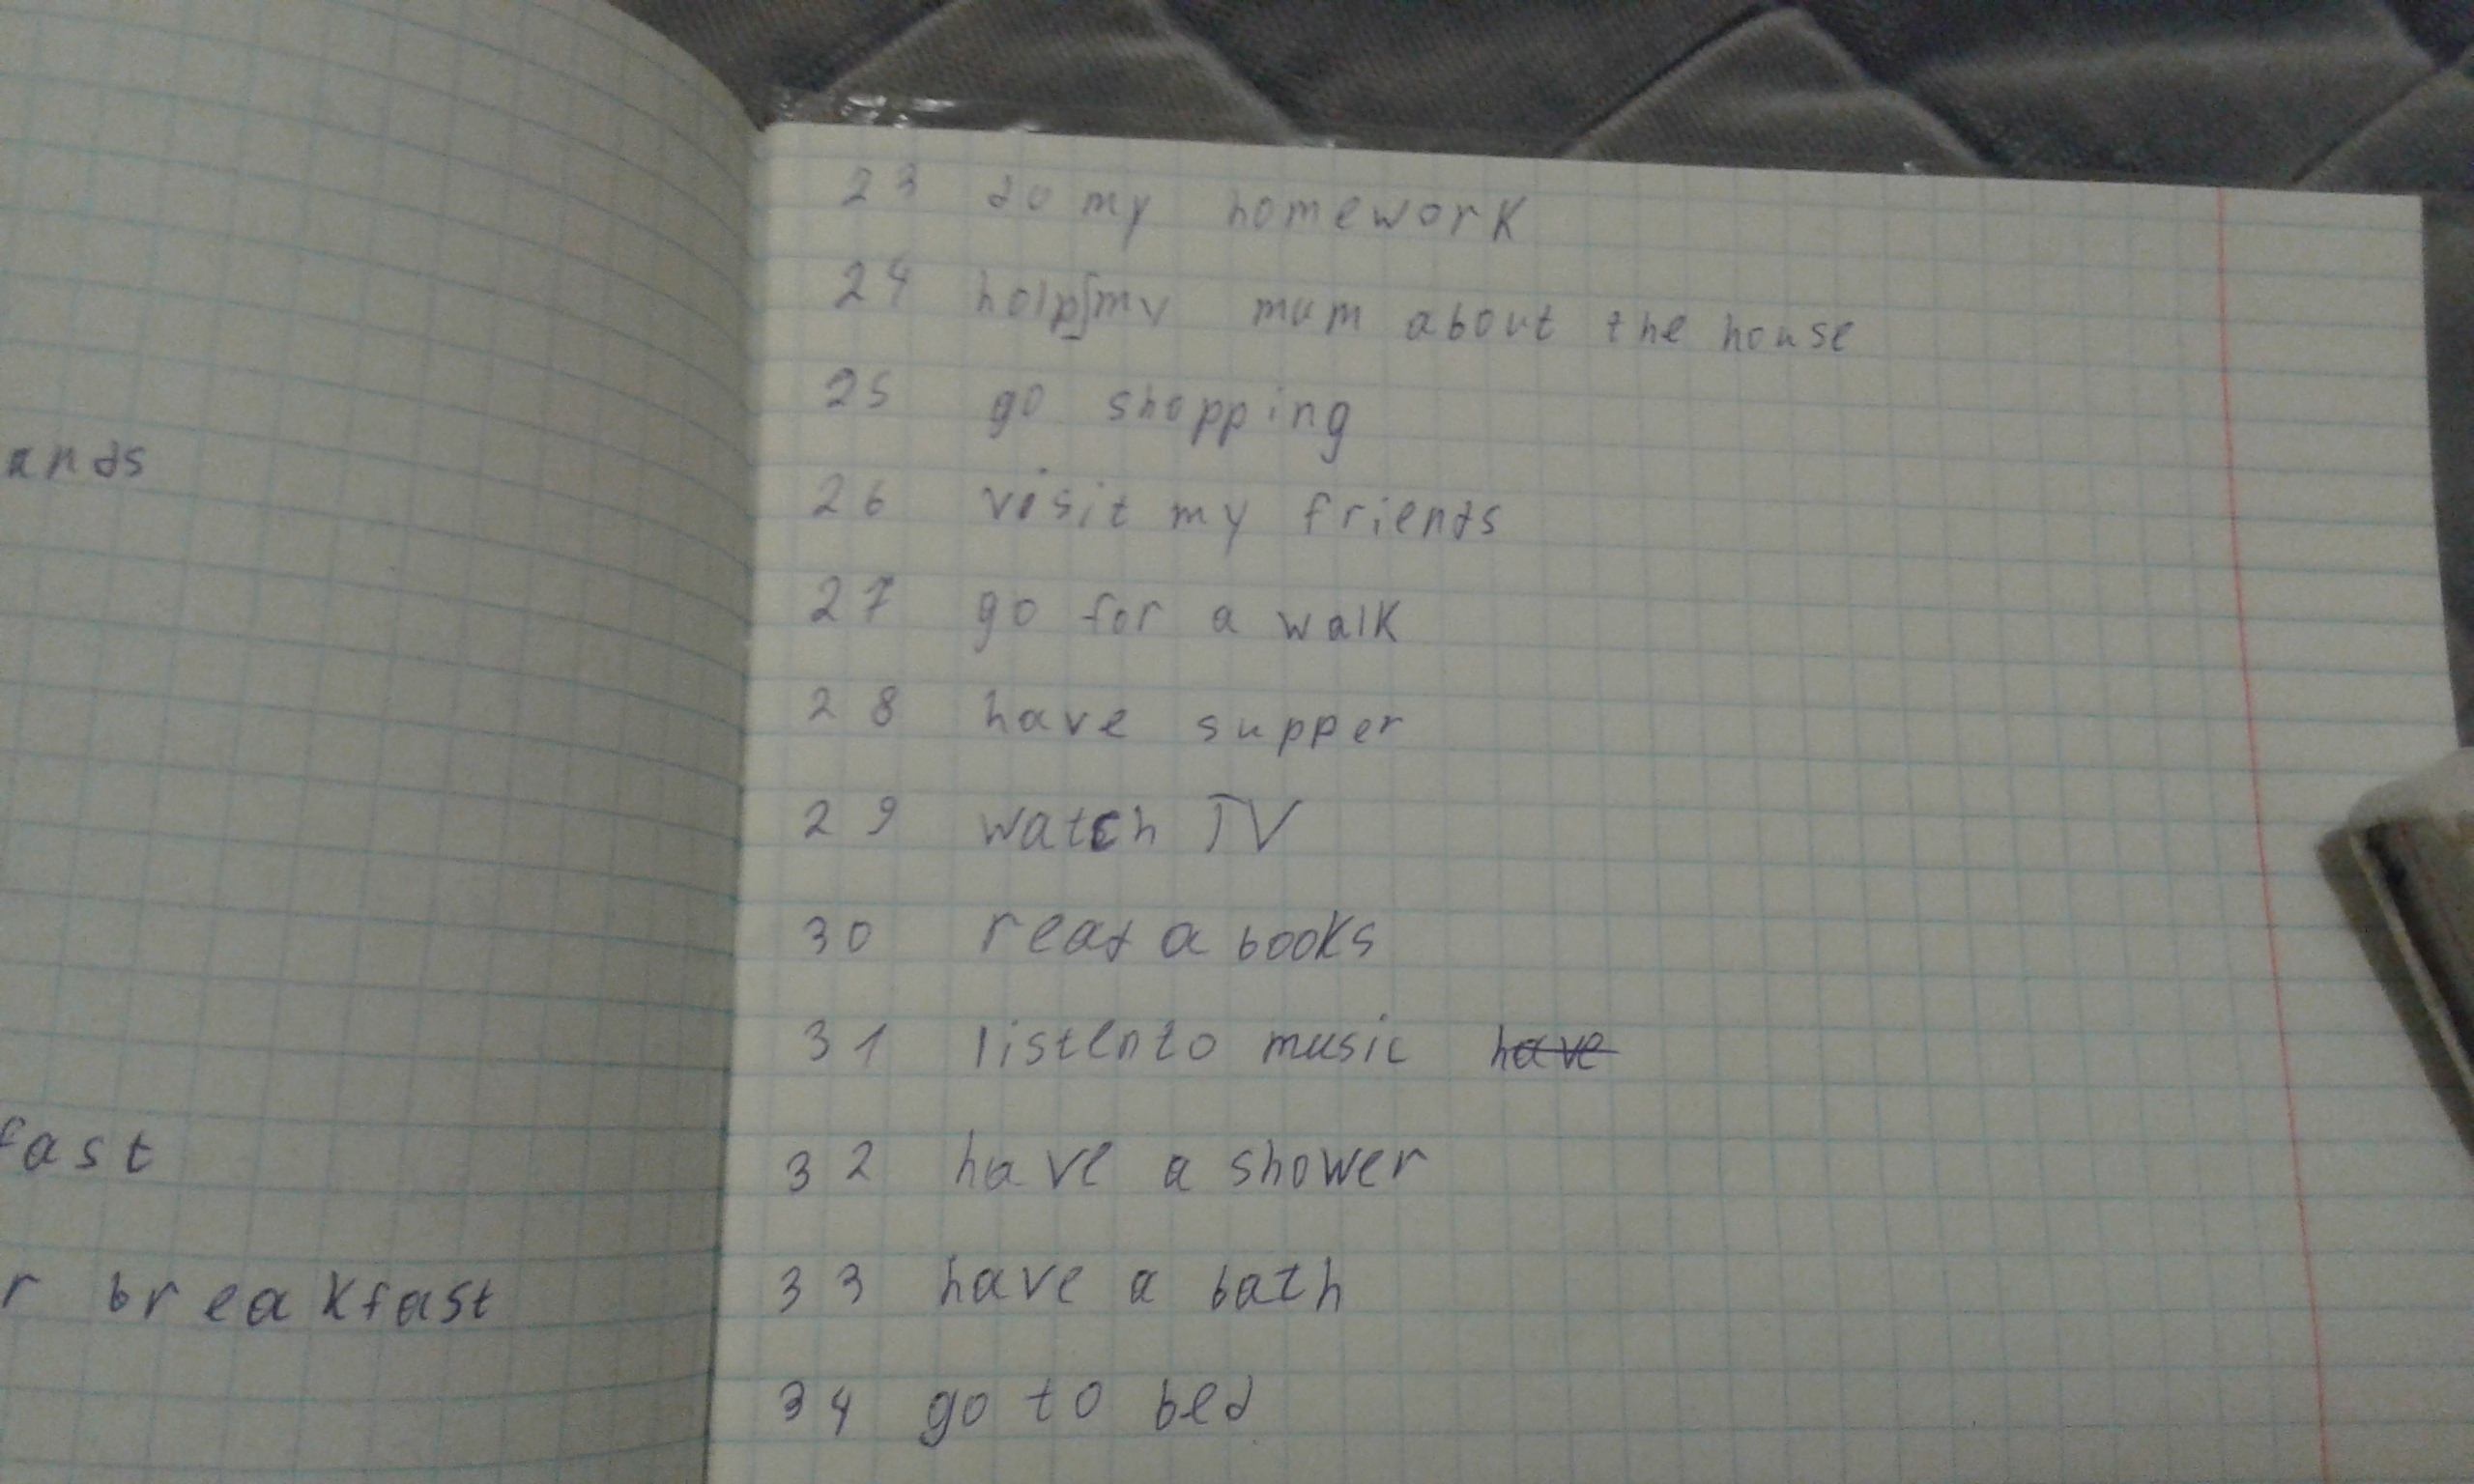 ands
fast
r breakfast
23 do my homework
24 holp my mum about the house
25 go shopping
26 visit my friends
27 go for a walk
28 have supper
29 watch TV
30 read a books
31 listento music have
32 have a shower
33 have a bath
34 go to bed